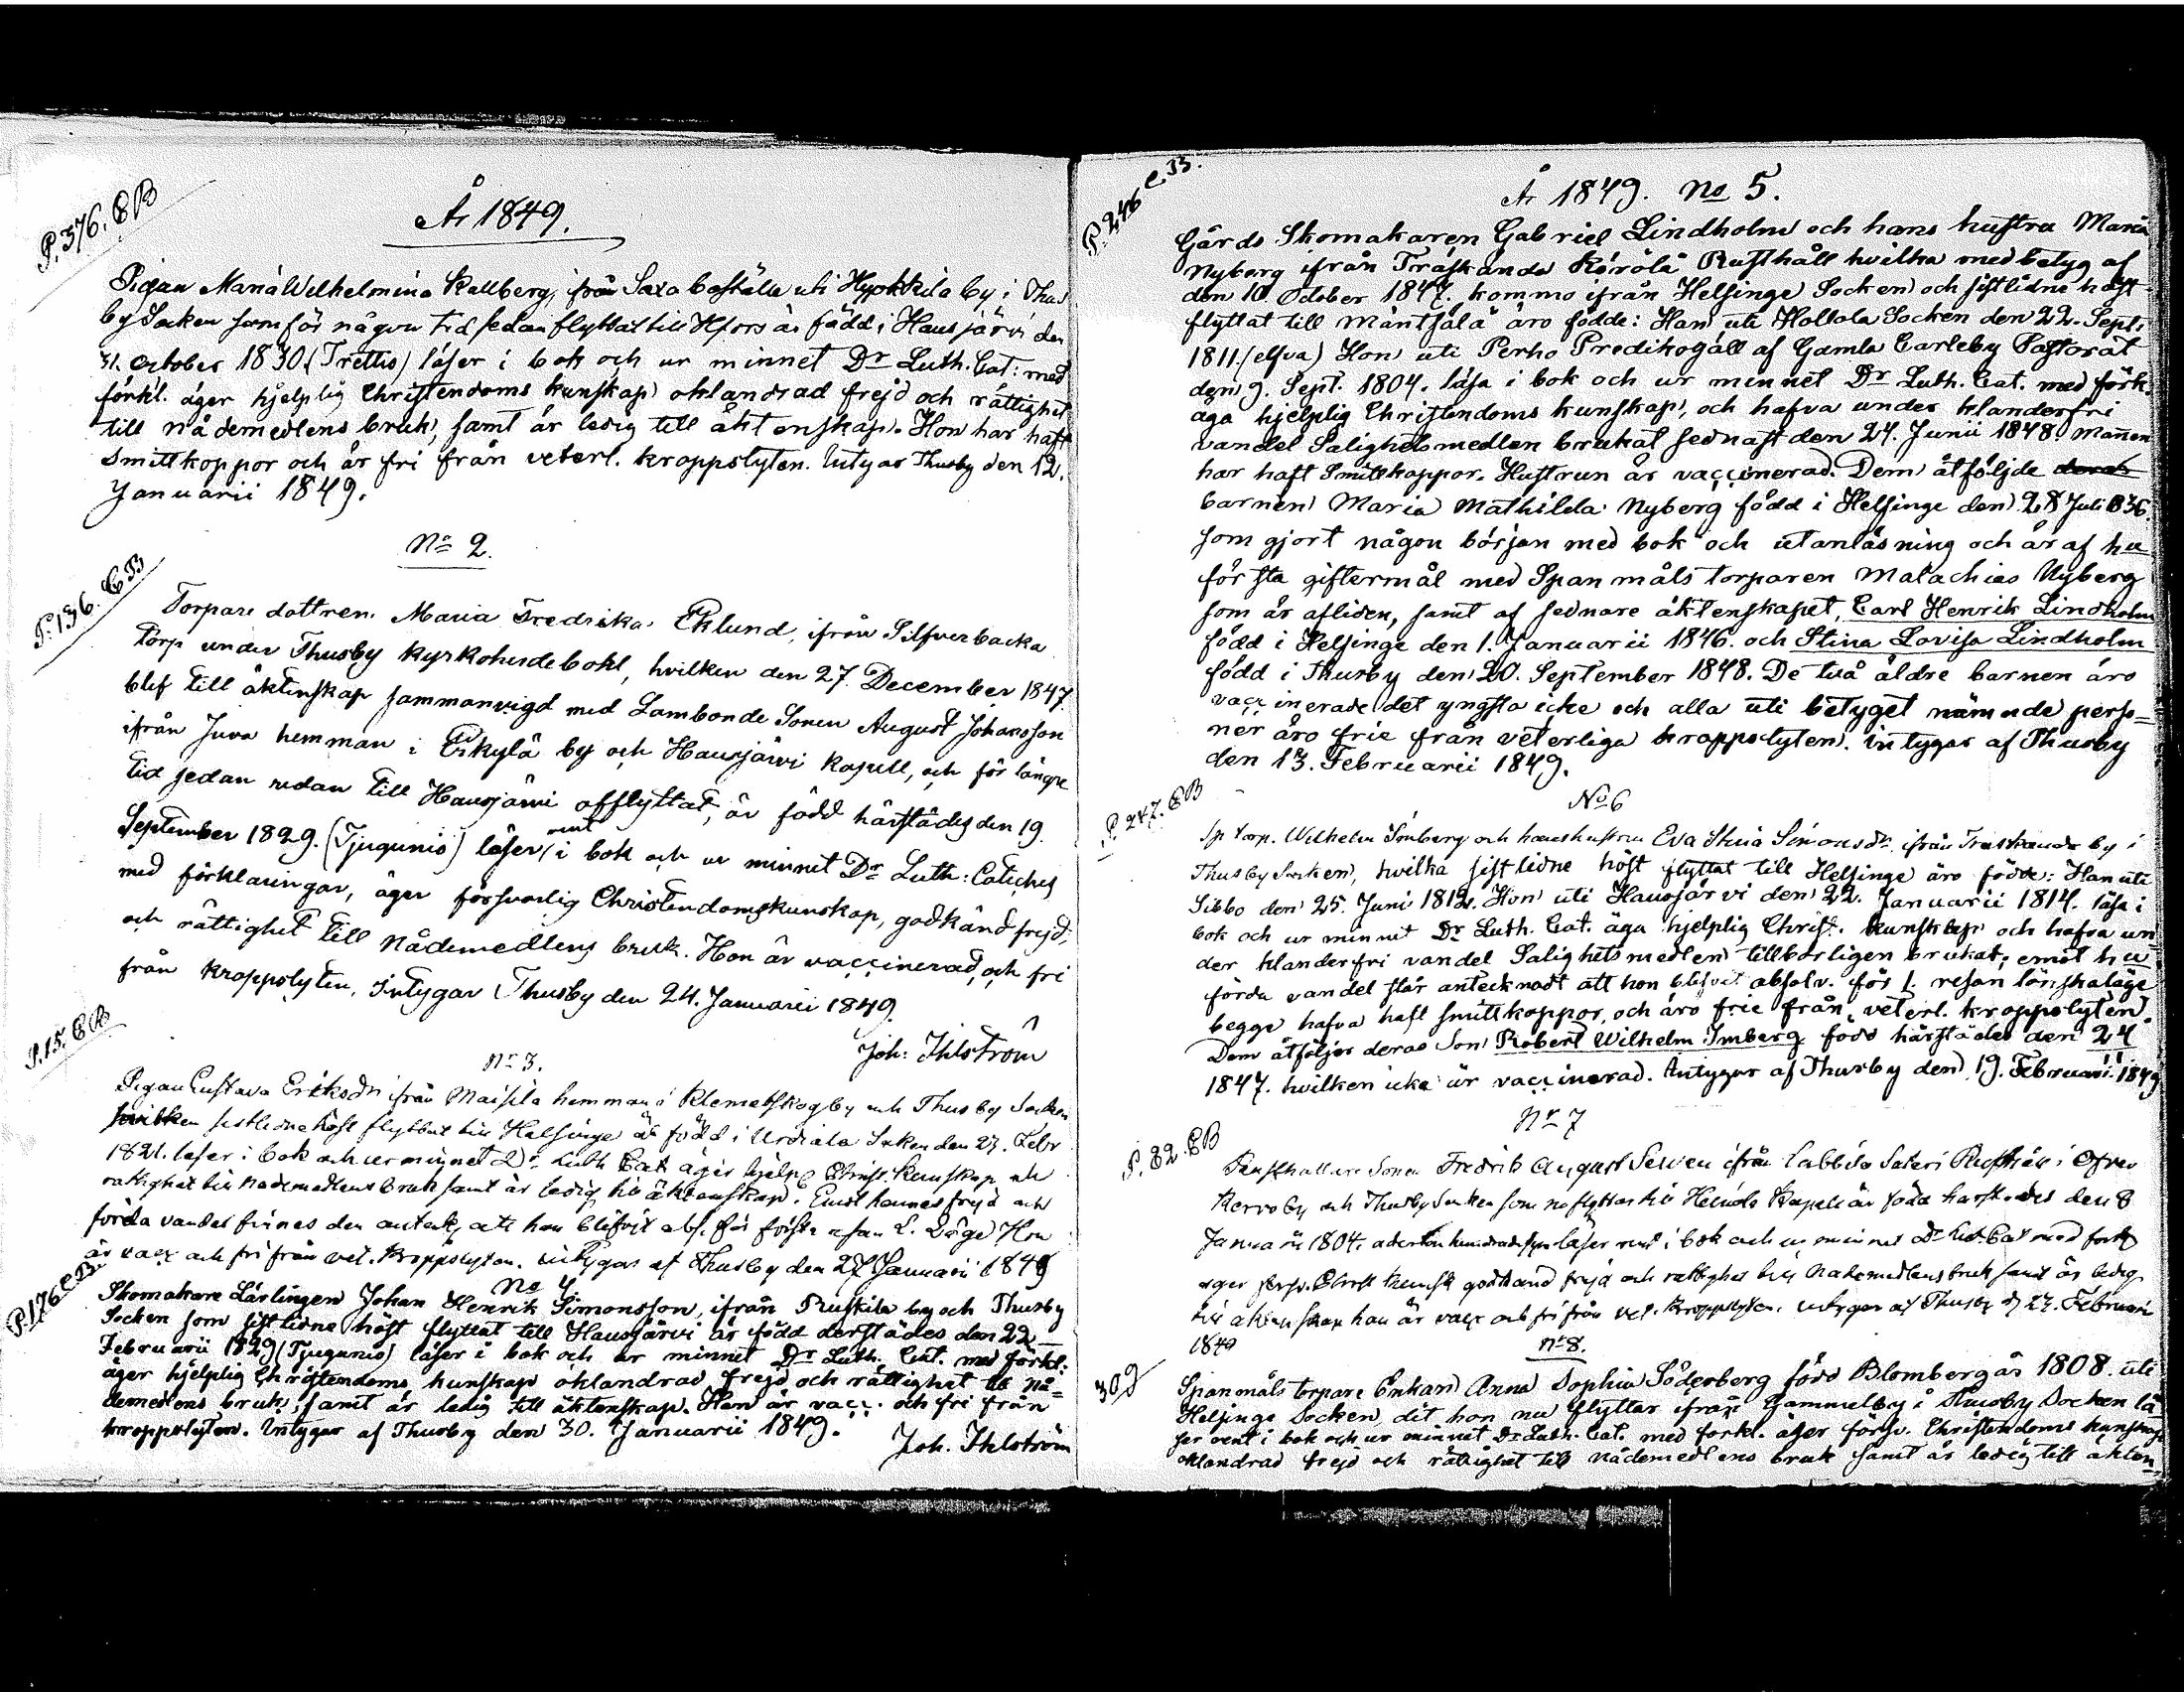 P. 376. CB
År 1849.
Pigan Maria Wilhelmina Kallberg, från Saxa boställe uti Hyökkilä by i Thus
by Socken som för någon tid sedan flyttat till Hfors är född i Hausjärvi den
31. October 1830. (Trettio) läser i bok och ur minnet Dr Luth. Cat: med
förkl. äger hjelplig Christendoms kunskap oklandrad frejd och rättighet
till nådemedlens bruk, samt är ledig till äktenskap. Hon har haft
Smittkoppor och är fri från veterl. kroppslyten. Intygar Thusby den 12.
Januarii 1849.
No 2.
P. 136. CB
Torpare dottren Maria Fredrika Eklund, ifrån Silfverbacka
torp under Thusby kyrkoherdebohl, hvilken den 27. December 1847.
blef till äktenskap sammanvigd med Lambonde Sonen August Johansson
ifrån Juva hemman i Erkylä by och Hausjärvi Kapell, och för längre
tid sedan redan till Hausjärvi afflyttat, är född härstädes den 19.
September 1829. (Tjugunio) läser rent i bok och ur minnet Dr Luth: Cateches
med förklaringar, äger försvarlig Christendomskunskap, godkänd frejd,
och rättighet till Nådemedlens bruk. Hon är vaccinerad, och fri
från kroppslyten, Intygar Thusby den 24. Januarii 1849.
Joh: Ihlström
P. 15. CB
No 3.
Pigan Gustava Eriksdr ifrån Maisila hemman i Klemetskog by och Thusby Socken
hvilken sistledne höst flyttat till Helsinge är född i Urdiala Soken den 23. Febr
1821. läser i bok och ur minnet Dr. Luth Cat äger hjelpl Christ. Kunskap och
rättighet till nådemedlens bruk samt är ledig till äktenskap. Emot hennes frejd och
förda vandel finnes den anteckn, att hon blifvit abs. för första resan L. Läge Hon
är vacc och fri från vet. kroppslyten. Intygar af Thusby den 27 Januari 1849
P. 176. C.B.
No 4
Skomakare Lärlingen Johan Henrik Simonsson, ifrån Ruskila by och Thusby
Socken som sistlidne höst flyttat till Hausjärvi är född derstädes den 22
Februarii 1829 (Tjugunio) läser i bok och ur minnet Dr Luth. Cat. med förkl.
äger hjelplig Christendoms kunskap oklandrad frejd och rättighet till Nå=
demedlens bruk, samt är ledig till äktenskap. Han är vacc. och fri från
kroppslyten. Intygar af Thusby den 30. Januarii 1849.
Joh. Ihlström
P. 246 C.B.
År 1849. No 5.
Gårds Skomakaren Gabriel Lindholm och hans hustru Maria
Nyberg ifrån Träskända Körölä Rusthåll hvilka med betyg af
den 10. October 1847. kommo ifrån Helsinge Socken och sistlidne höst
flyttat till Mäntsälä äro födde: Han uti Hollola Socken den 22. Sept:
1811. (elfva) Hon uti Perho Predikogäll af Gamla Carleby Pastorat
den 9. Sept. 1804. läsa i bok och ur minnet Dr Luth. Cat. med förk.
äga hjelplig Christendoms kunskap, och hafva under klanderfri
vandel Salighetsmedlen brukat sednast den 24. Junii 1848. Mannen
har haft Smittkoppor. Hustrun är vaccinerad. Dem åtföljde deras
barnen Maria Mathilda Nyberg född i Helsinge den 28 Juli 1836.
som gjort någon början med bok och utanläsning och är af hu
första giftermål med Spanmåls torparen Malachias Nyberg
som är afliden, samt af sednare äktenskapet, Carl Henrik Lindholm
född i Helsinge den 1. Januarii 1846. och Stina Lovisa Lindholm
född i Thusby den 20. September 1848. De två äldre barnen äro
vaccinerade det yngsta icke och alla uti betyget nämnde perso=
ner äro frie från veterliga kroppslyten. intygas af Thusby
den 13. Februarii 1849.
P. 247. CB
No 6
Sp torp. Wilhelm Imberg och hans hustru Eva Stina Simonsdr ifrån Träskända by i
Thusby Socken, hvilka sistlidne höst flyttat till Helsinge äro födde: Han uti
Sibbo den 25. Juni 1812. Hon uti Hausjärvi den 22. Januarii 1814. läsa i
bok och ur minnet Dr Luth. Cat. äga hjelplig Christ. kunskap och hafva un
der klanderfri vandel Salighetsmedlen tillbörligen brukat; emot hu
förda vandel står antecknadt att hon blifvit absolv. för 1. resan lönskaläge
begge hafva haft smittkoppor, och äro frie från veterl. kroppslyten.
Dem åtföljer deras Son Robert Wilhelm Imberg född härstädes den 24
1847. hvilken icke är vaccinerad. Intygar af Thusby den 19. Februarii 1849
No 7
P. 82. CB
Rusthållare Sonen Fredrik August ifrån Labbila Säteri Rusthåll i Öfver
Kervo by och Thusby Socken som nu flyttar till Kapell är född härstädes den 8
Januarii 1804. läser rent i bok och ur minnet Dr Lut. Cat med förkl
äger försv. Christ kunsk godkänd frejd och rättighet till Nådemedlens bruk samt är ledig
till äktenskap han är vacc och fri från vet. kroppslyten. intygar af Thusby d 23. Februari
1849
No 8.
309
Spanmåls torpare Enkan Anna Sophia Söderberg född Blomberg år 1808. uti
Helsinge Socken, dit hon nu flyttar ifrån Gammelby i Thusby Socken lä
ser rent i bok och ur minnet Dr Luth. Cat. med förkl. äger försv. Christendoms kunskap
oklandrad frejd och rättighet till nådemedlens bruk samt är ledig till äkten=